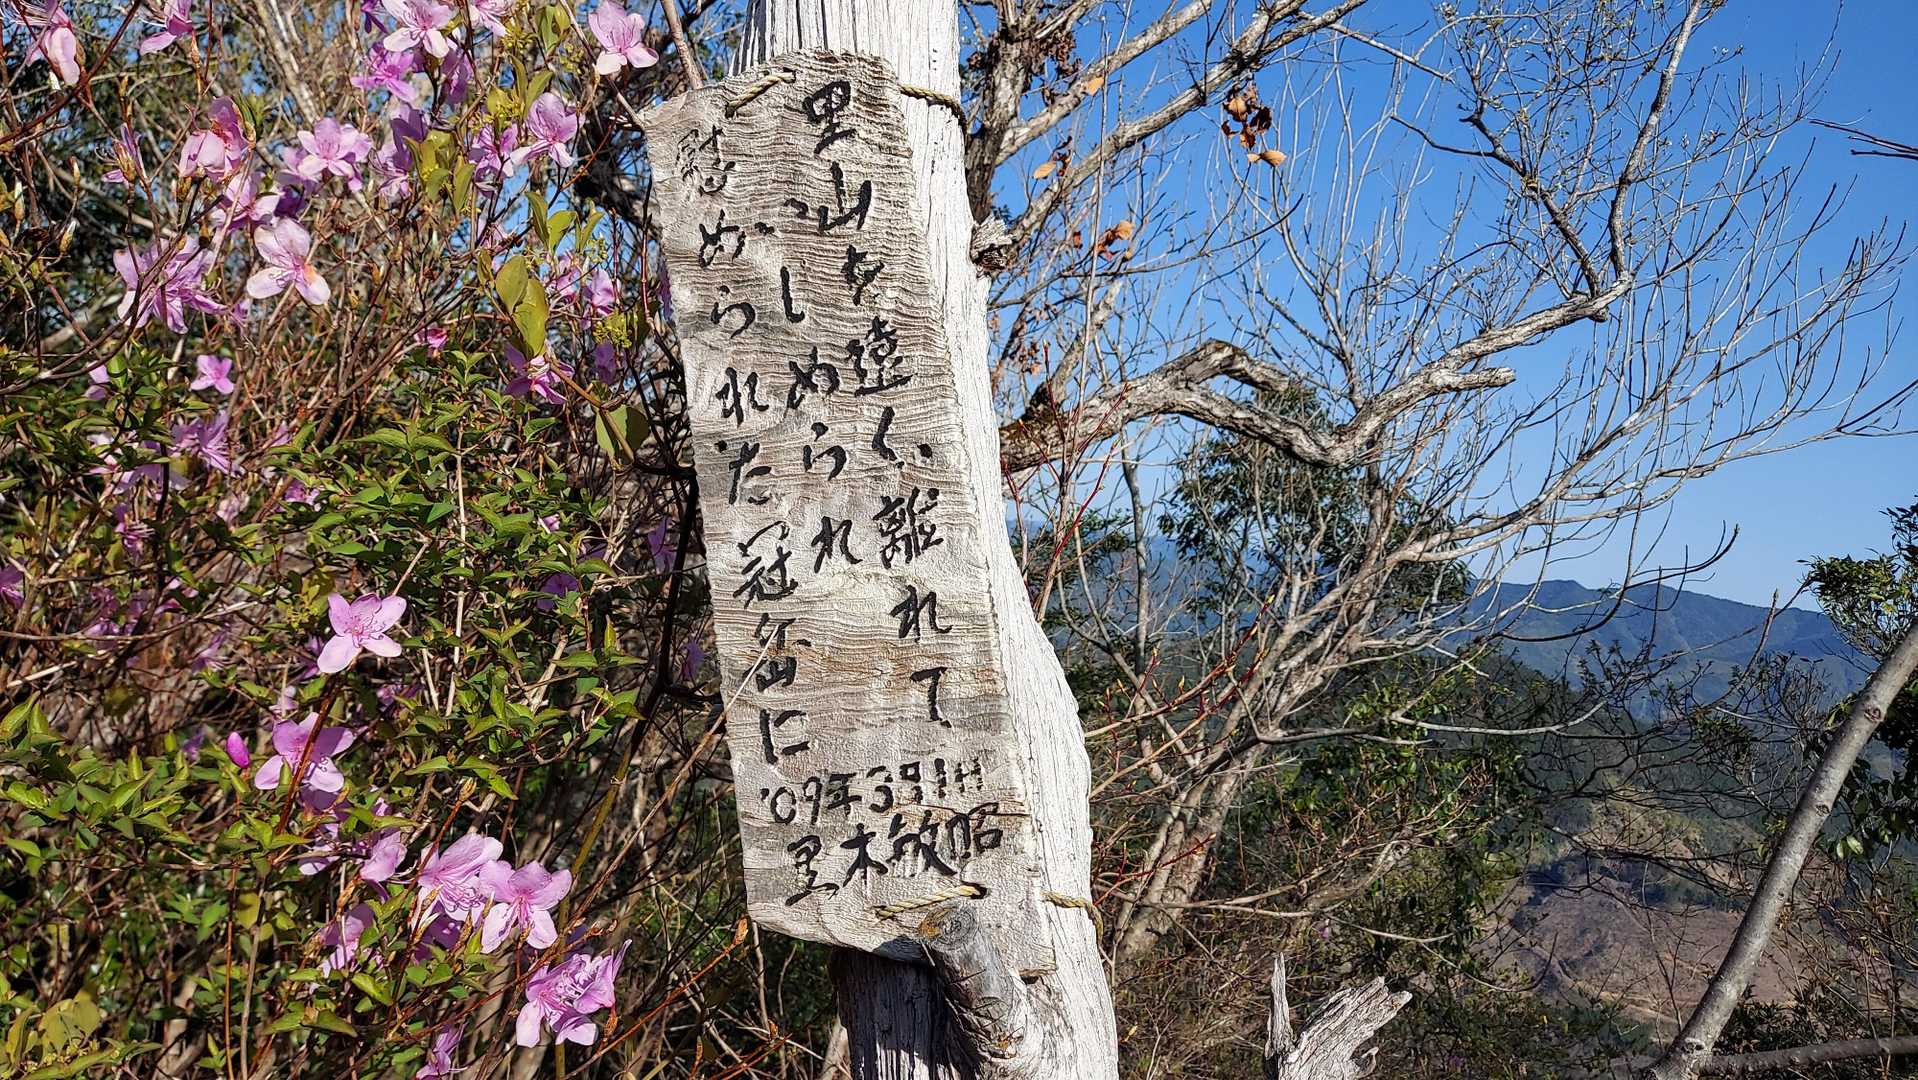 里山を遠く離れて
いじめられ
慰められた冠岳に
'09年3月11日
黒木敏昭